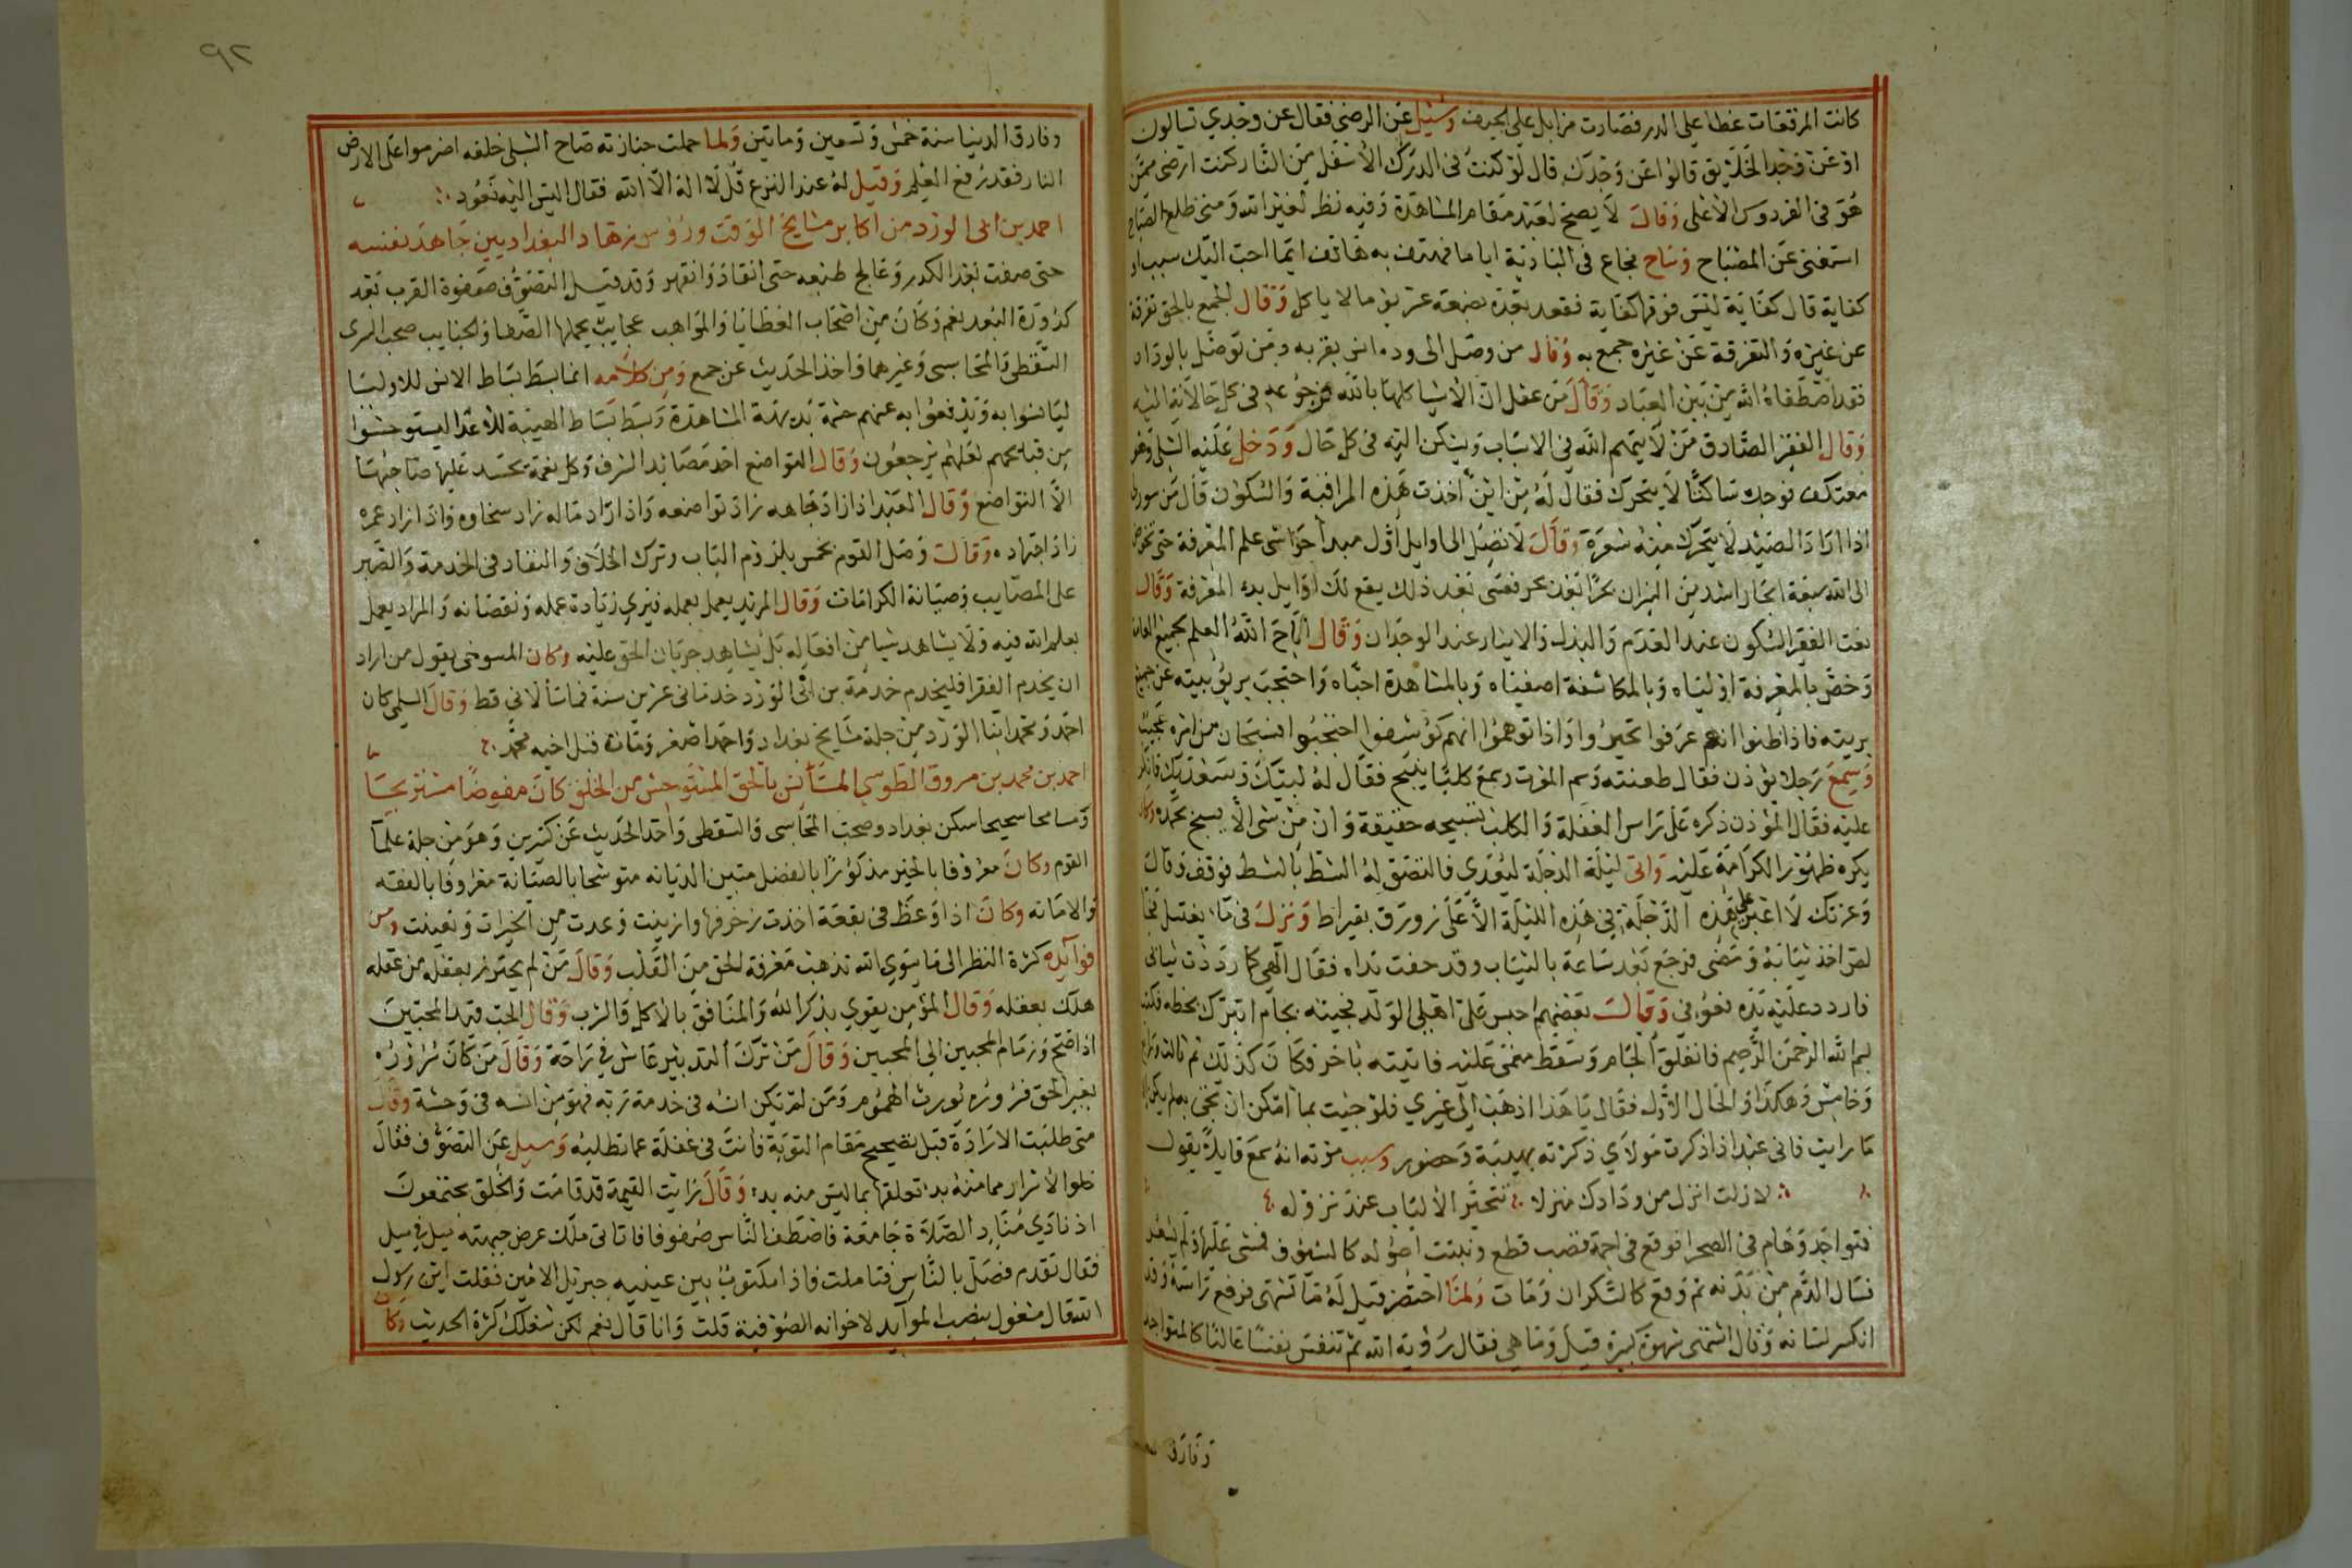 كانت المرقعات غطا على الدر فصارت مزابل على الجيف وسئيل عن الرضى فقال عن وجدي تسالون
او عن وجد الخلق قالوا عن وجدك قال لو كنت في الدرك الأسفل من النار كنت ارضى ممن
هو في الفردوس الأعلى وقال لا يصح لعبد مقام المشاهدة وفيه نظر لغير الله ومتى طلع الصباح
استغنى عن المصباح وساح فجاع في البادية اياما فهتف به هاتف ايما احب اليك سبب او
كفاية قال كفاية ليس فوقها كفاية فقعد بعده بضعة عشر يوما لا ياكل وقال الجمع بالحق تفرقة
عن غيره والتفرقة عن غيره جمع به وقال من وصل الى وده انس بقربه ومن توصل بالوداد
فقد اصطفاه الله من بين العباد وقال من عقل ان الأشيا كلها بالله فرجوعه في كل حالاته اليه
وقال الفقير الصادق من لا يتهم الله في الاسباب ويسكن اليه في كل حال ودخل عليه الشبلي وهو
معتكف فوجده ساكنا لا يتحرك فقال له من اين اخذت هذه المراقبة والسكون قال من سنور
اذا اراد الصيد لا يتحرك منه شعرة وقال لا تصل الى اوايل اول مبدأ حواشي علم المعرفة حتى تخوض
الى الله سبعة ابحار اشد من النيران بحرا بعد بحر فعسى بعد ذلك يقع لك اوايل بدء المعرفة وقال
نعت الفقير السكون عند العدم والبذل والايثار عند الوجدان وقال اباح الله العلم لجميع العامة
وخص بالمعرفة اوليآه وبالمكاشفة اصفياه وبالمشاهدة احباه واحتجب بربوبيته عن جميع
بريته فاذا ظنوا انهم عرفوا تحيروا واذا توهموا انهم كوشفوا احتجبوا فسبحان من امره عجيب
وسمع رجلا يوذن فقال طعنة وسم الموت وسمع كلبا ينبح فقال له لبيك وسعديك فانكر
عليه فقال المؤذن ذكره على راس الغفلة والكلب تسبيحه حقيقة وان من شى الا يسبح بحمده وكان
يكره ظهور الكرامة عليه واتى ليلة الدجلة ليعدي فالتصق له الشط بالشط فوقف وقال
وعزتك لا اعبر على هذه الدجلة في هذه الليلة الا على زورق بقيراط ونزل في ما يغتسل فجا
لص اخذ ثيابه ومضى فرجع بعد ساعة بالثياب وقد جفت يداه فقال الهي كما رددت ثيابي
فاردد عليه يده فعوفي وقال بعضهم احتبس على اهلي الولد فجيته بجام اتبرك بخطه فكتب
بسم الله الرحمن الرحيم فانفلق الجام وسقط مغشى عليه فاتيته باخر فكان كذلك ثم ثالث ورابع
وخامس وهكذا والحال الأول فقال يا هذا اذهب الى غيري فلو جيت بما امكن ان تجى به لم يكن الا
ما رايت فاني عبد اذا ذكرت مولاي ذكرته بهيبة وحضور وسبب موته انه سمع قايلا يقول
لا زلت انزل من ودادك منزلا تتحير الألباب عند نزوله
فتواجد وهام في الصحرا فوقع في اجمة قصب قطع وبقيت اصوله كالسيوف فمشى عليها ولم يشعر
فسال الدم من بدنه ثم وقع كالسكران ومات ولما احتضر قيل له ما تشتهي فرفع راسه وقد
انكسر لسانه وقال اشتهى شهوة كبيرة قيل وما هي فقال رؤية الله ثم تنفس نفسا عاليا كالمتواجد
وفارق
٩٢
وفارق الدنيا سنة خمس وتسعين وماتين ولما حملت جنازته صاح الشبلي خلفه اضرموا على الارض
النار فقد رفع العلم وقيل له عند النزع قل لا اله الا الله فقال اليس اليه نعود
احمد بن ابي الورد من اكابر مشايخ الوقت ورؤس زهاد البغداديين جاهد نفسه
حتى صفت بعد الكدر وعالج طبعه حتى انقاد وانقهر وقد قيل التصوف صفوة القرب بعد
كدورة البعد نعم وكان من اصحاب العطايا والمواهب عجايب يحملها الصبا والجنايب صحب السرى
السقطي والمحاسبي وغيرهما واخذ الحديث عن جمع ومن كلامه انما بسط بساط الانس للاوليا
ليانسوا به ويدفعوا به عنهم حشمة بديهة المشاهدة وبسط بساط الهيبة للأعدا ليستوحشوا
من قبايحهم لعلهم يرجعون وقال التواضع احد مصائد الشرف وكل نعمة تحسد عليها صاحبها
الا التواضع وقال العبد اذا زاد جاهه زاد تواضعه واذا زاد ماله زاد سخاوه واذا زاد عمره
زاد اجتهاده وقال وصل القوم بخمس بلزوم الباب وترك الخلاف والنفاد في الخدمة والصبر
على المصايب وصيانة الكرامات وقال المريد يعمل بعمله فيري زيادة عمله ونقصانه والمراد يعمل
بعلم الله فيه ولا يشاهد شيا من افعاله بل يشاهد جريان الحق عليه وكان المسوحى يقول من اراد
ان يخدم الفقرا فليخدم خدمة بن ابي الورد خدمانى عشرين سنة فما سألاني قط وقال السلمي كان
احمد ومحمد ابنا الورد من جلة مشايخ بغداد واحمد اصغر ومات قبل اخيه محمد
احمد بن محمد بن مسروق الطوسي المستأنس بالحق المستوحش من الخلق كان مفوضا مستريحا
ومسامحا سحيحا سكن بغداد وصحب المحاسبى والسقطي واخذ الحديث عن كثيرين وهو من جلة علما
القوم وكان معروفا بالخير مذكورا بالفضل متين الديانه متوشحا بالصيانة معروفا بالفقه
والامانه وكان اذا وعظ في بقعة اخذت زخرفها وازينت وعدت من الخيرات وتعينت ومن
فوآيده كثرة النظر الى ما سوي الله تذهب معرفة الحق من القلب وقال من لم يحترز بعقله من عقله
هلك بعقله وقال المؤمن يقوي بذكر الله والمنافق بالأكل والشرب وقال الحب قيد المحبين
اذا صح وزمام المحبين الى المحبين وقال من ترك التدبير عاش في راحة وقال من كان سروره
بغير الحق فسروره يورث الهموم ومن لم يكن انسه في خدمة ربه فهو من انسه في وحشة وقال
متى طلبت الارادة قبل تصحيح مقام التوبة فانت في غفلة عما تطلبه وسيل عن التصوف فقال
خلوا الأسرار مما منه بد وتعلقها بما ليس منه بد وقال رايت القيمة قد قامت والخلق مجتمعون
اذ نادي مناد الصلاة جامعة فاصطف الناس صفوفا فاتاني ملك عرض جبهته ميل في ميل
فقال تقدم فصل بالناس فتاملت فاذا مكتوب بين عينيه جبريل الامين فقلت اين رسول
الله قال مشغول بنصب الموآيد لاخوانه الصوفية قلت وانا قال نعم لكن شغلك كثرة الحديث وكان